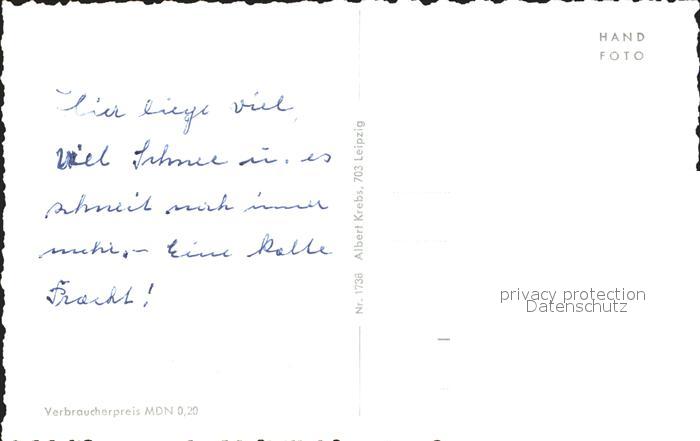 Hier liegt viel,
viel Schnee u. es
schneit noch immer
mehr. – Eine kalte
Pracht!
Verbraucherpreis MDN 0,20
Nr. 1738 Albert Krebs, 703 Leipzig
HAND
FOTO
privacy protection
Datenschutz